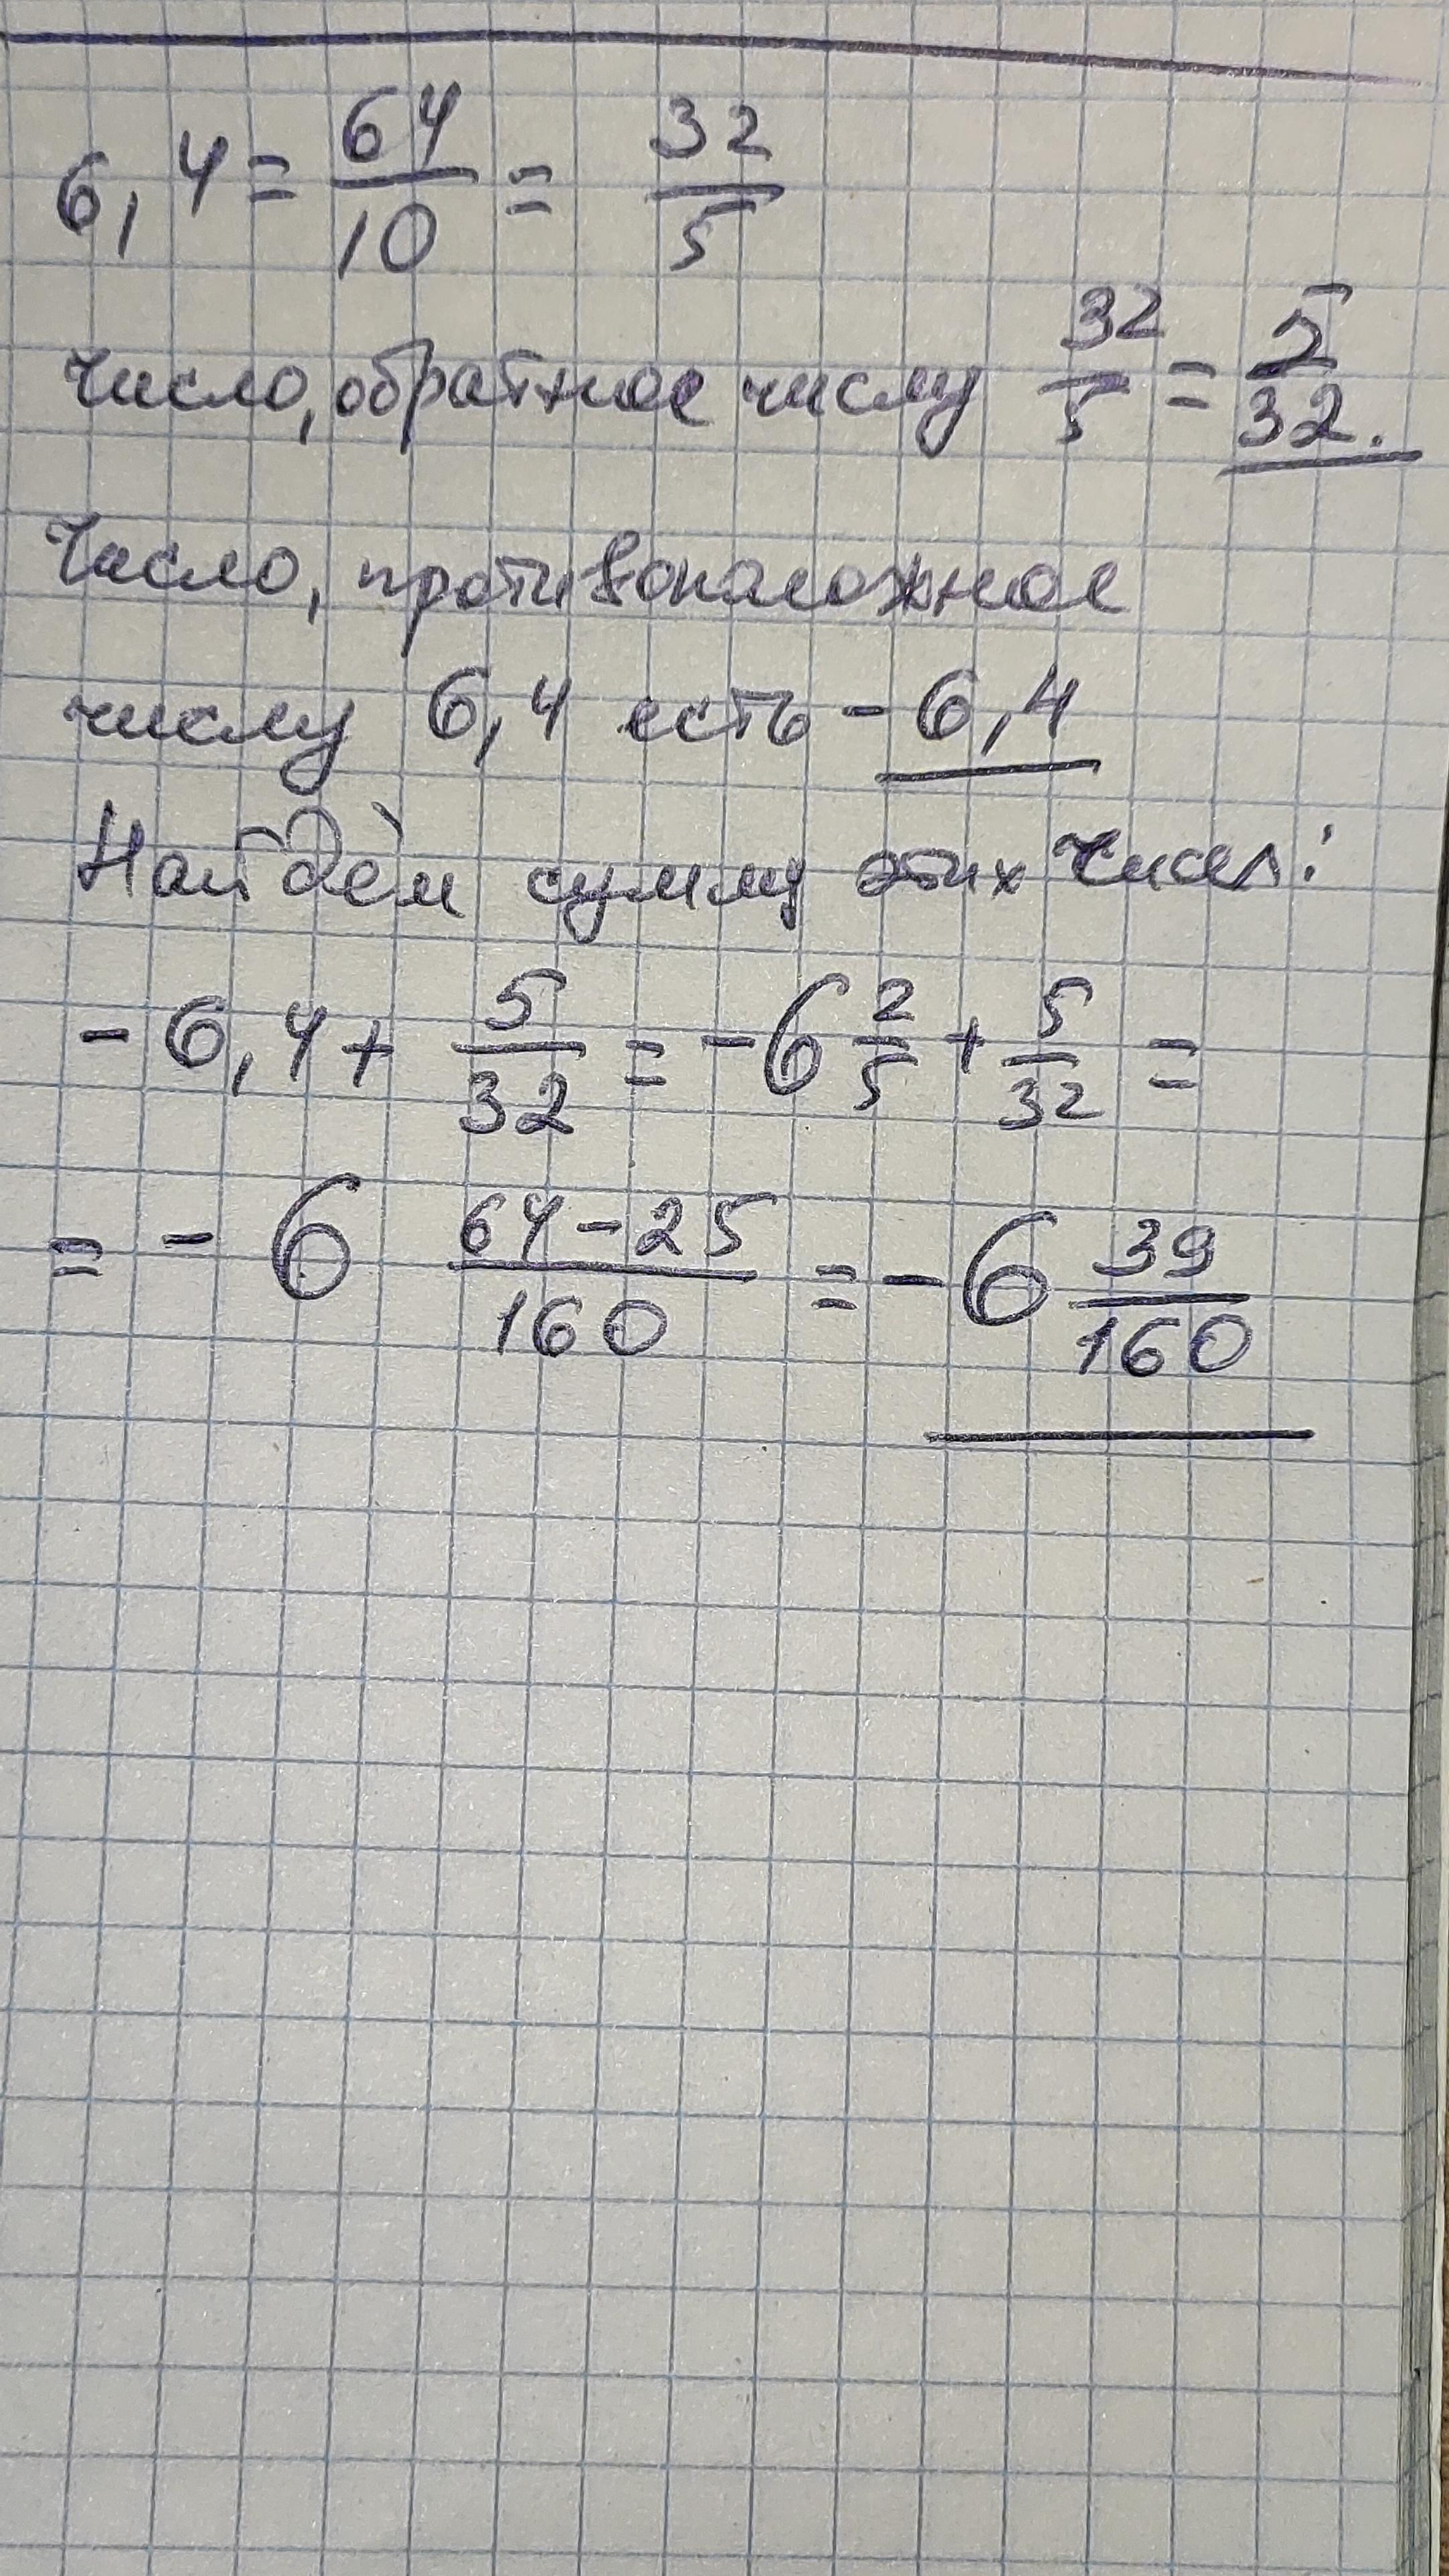 6,4 = 64/10 = 32/5
число, обратное числу 32/5 = 5/32.
Число, противоположное
числу 6,4 есть -6,4
Найдём сумму этих чисел:
-6,4 + 5/32 = -6 2/5 + 5/32 =
= -6 64-25/160 = -6 39/160